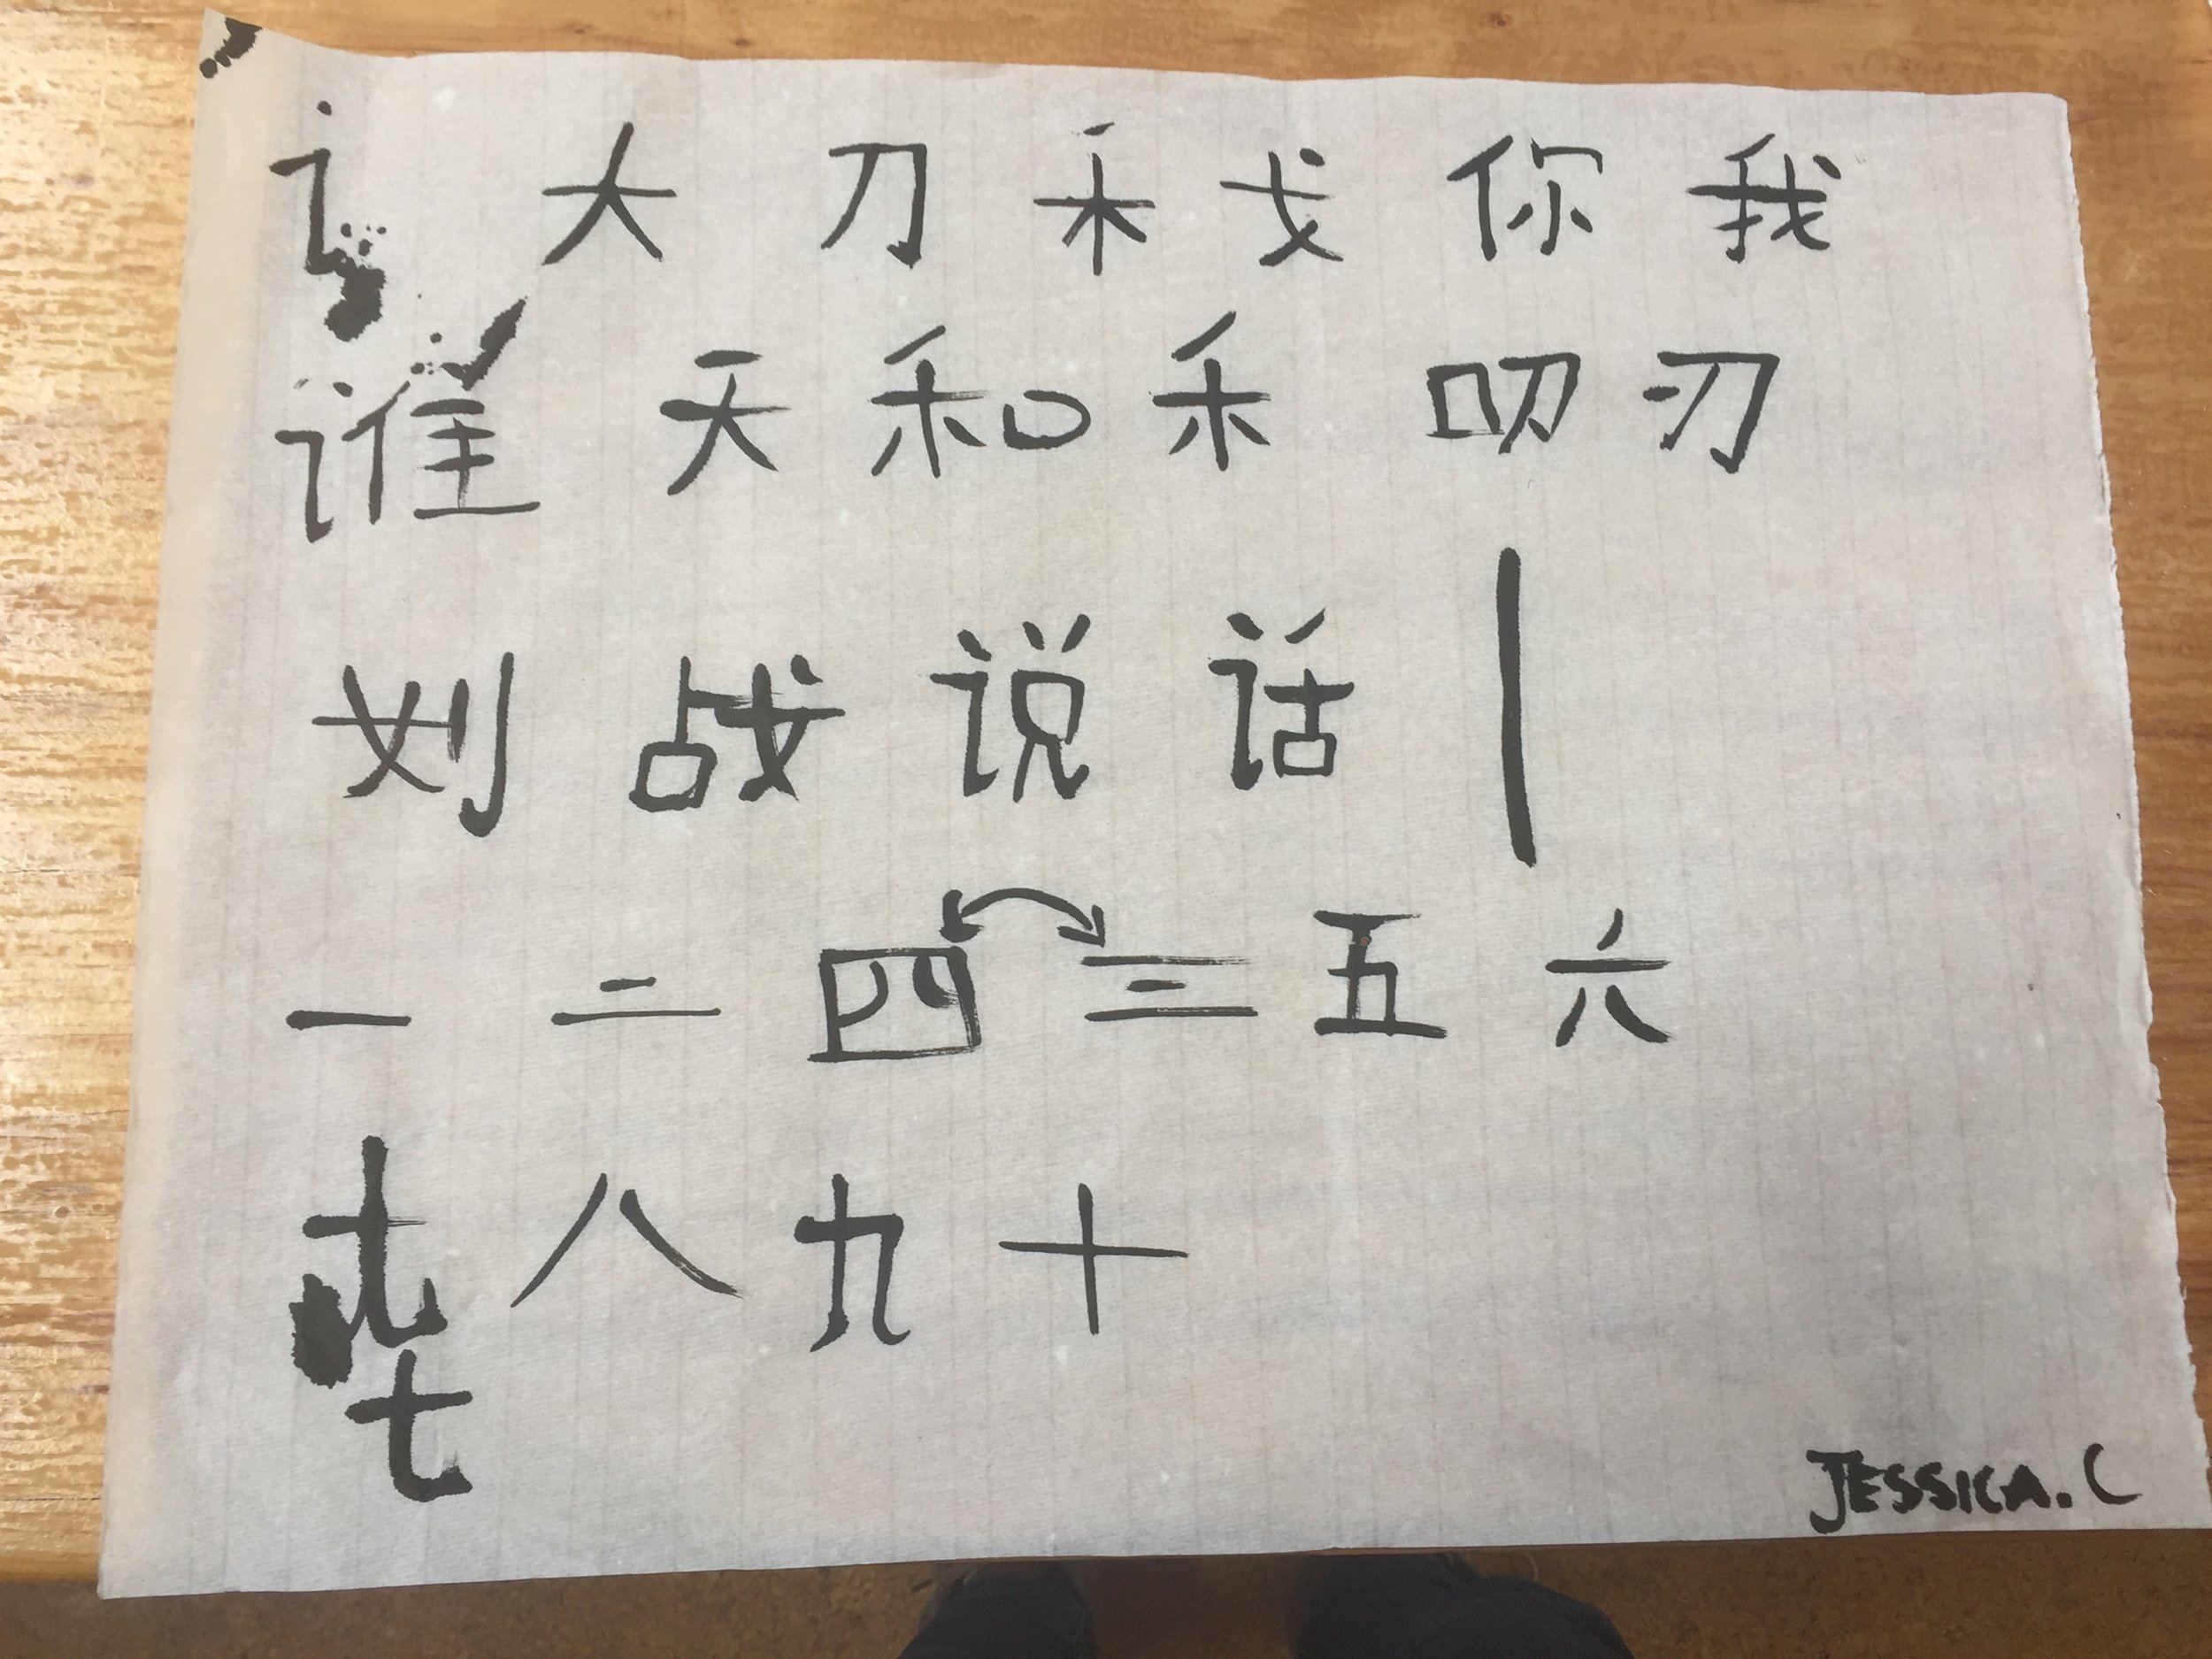 讠 大 刀 禾 戈 你 我
谁 天 和 禾 叨 刃
划 战 说 话 丨
一 二 四 三 五 六
七 八 九 十
七
JESSICA. C